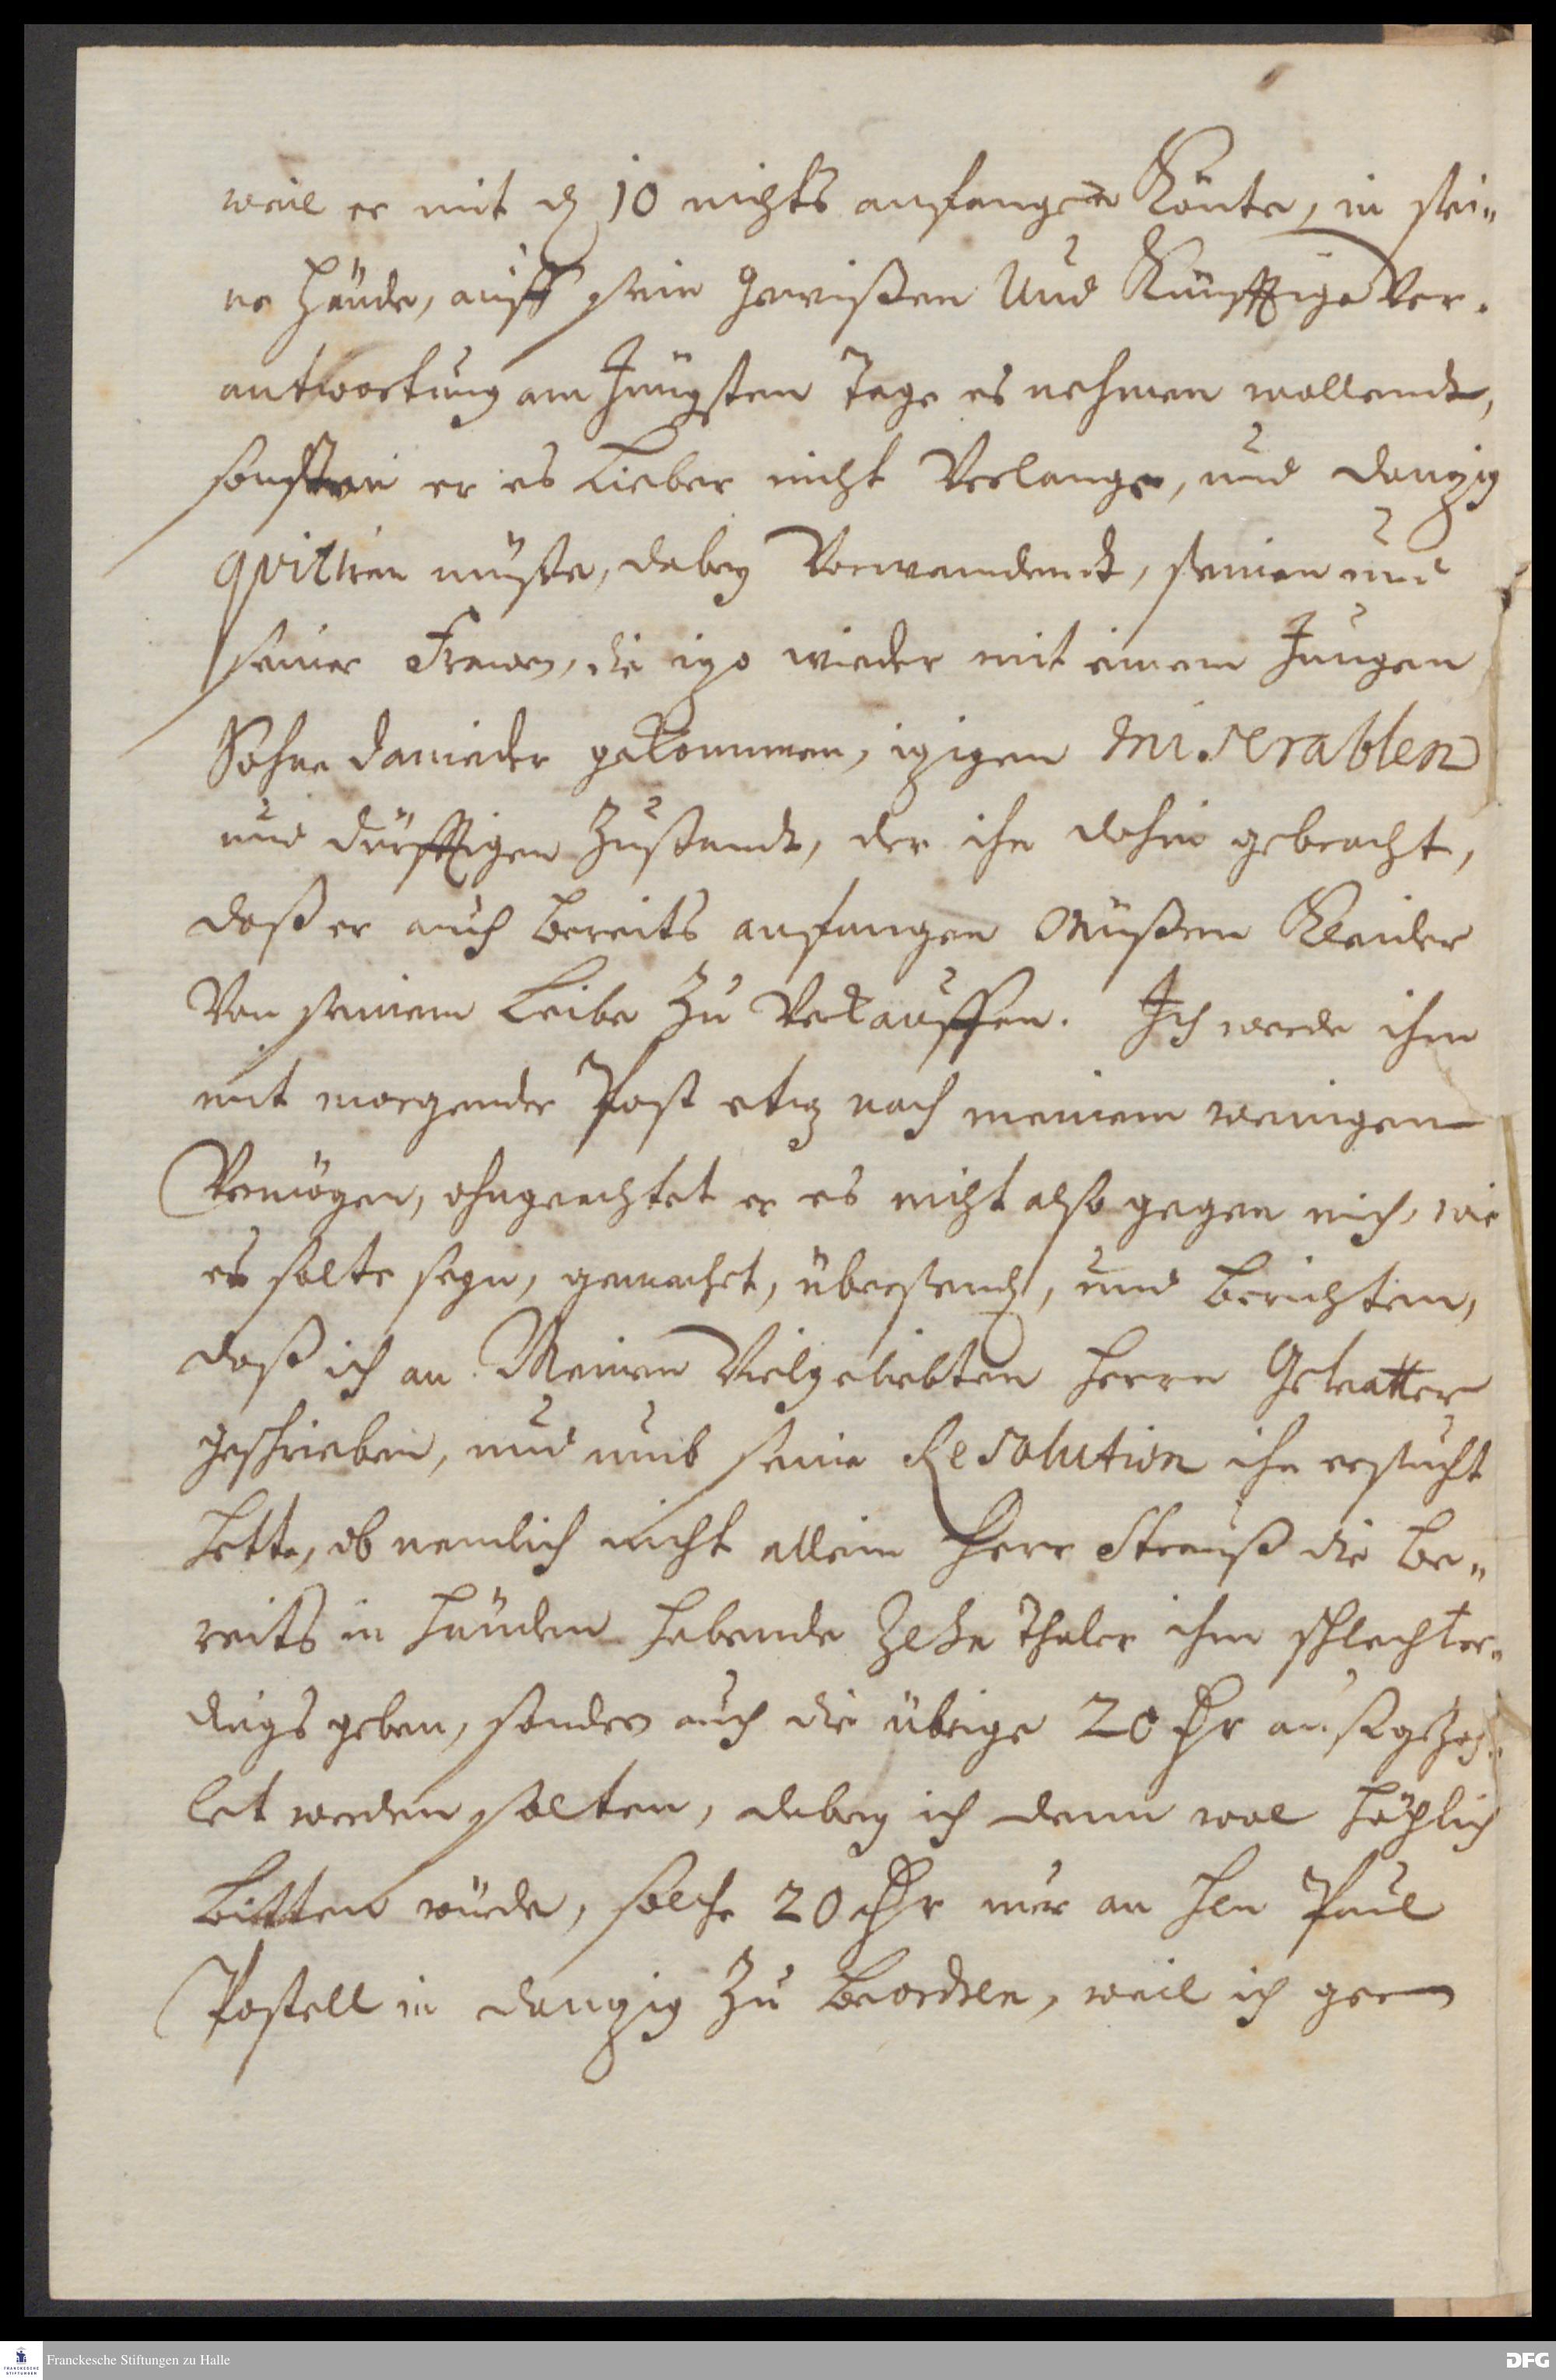 weil er mit d 10 nichts anfangen Könte, in sei„
ne Hände, auff sein Gewißen Und Künfftige Ver„
antwortung am Jüngsten Tage es nehmen wollendt,
sonsten er es Lieber nicht Verlange, und Danzig
qvittiren müste, dabey Vorwendendt, seinen und
seiner Frawen, die izo wieder mit einem Jungen
Sohne danieder gekommen, izigen miserablen
und dürfftigen Zustandt, der ihn dahin gebracht,
daß er auch bereits anfangen Müßen Kleider
Von seinem Leibe Zu Verkauffen. Ich werde ihm
mit morgender Post etw nach meinem wenigen
Vermögen, ohngeachtet er es nicht also gegen mich, wie
es solte seyn, gemachet, übersend, und berichten,
daß ich an Meinen Vielgeliebten Herrn Gevatter
geschrieben, und umb seine Resolution ihn ersucht
hette, ob nemlich nicht allein Herr Strauß die be„
reits in Händen habende Zehn Thaler ihm schlechter„
dings geben, sondern auch die übrige 20 Thr außgezah„
let werden solten, dabey ich denn wol höchlich
bitten würde, solche 20 Thr nur an Hen Paul
Postell in Danzig Zu beordren, weil ich gern
Franckesche Stiftungen zu Halle
FRANCKESCHE STIFTUNGEN
DFG